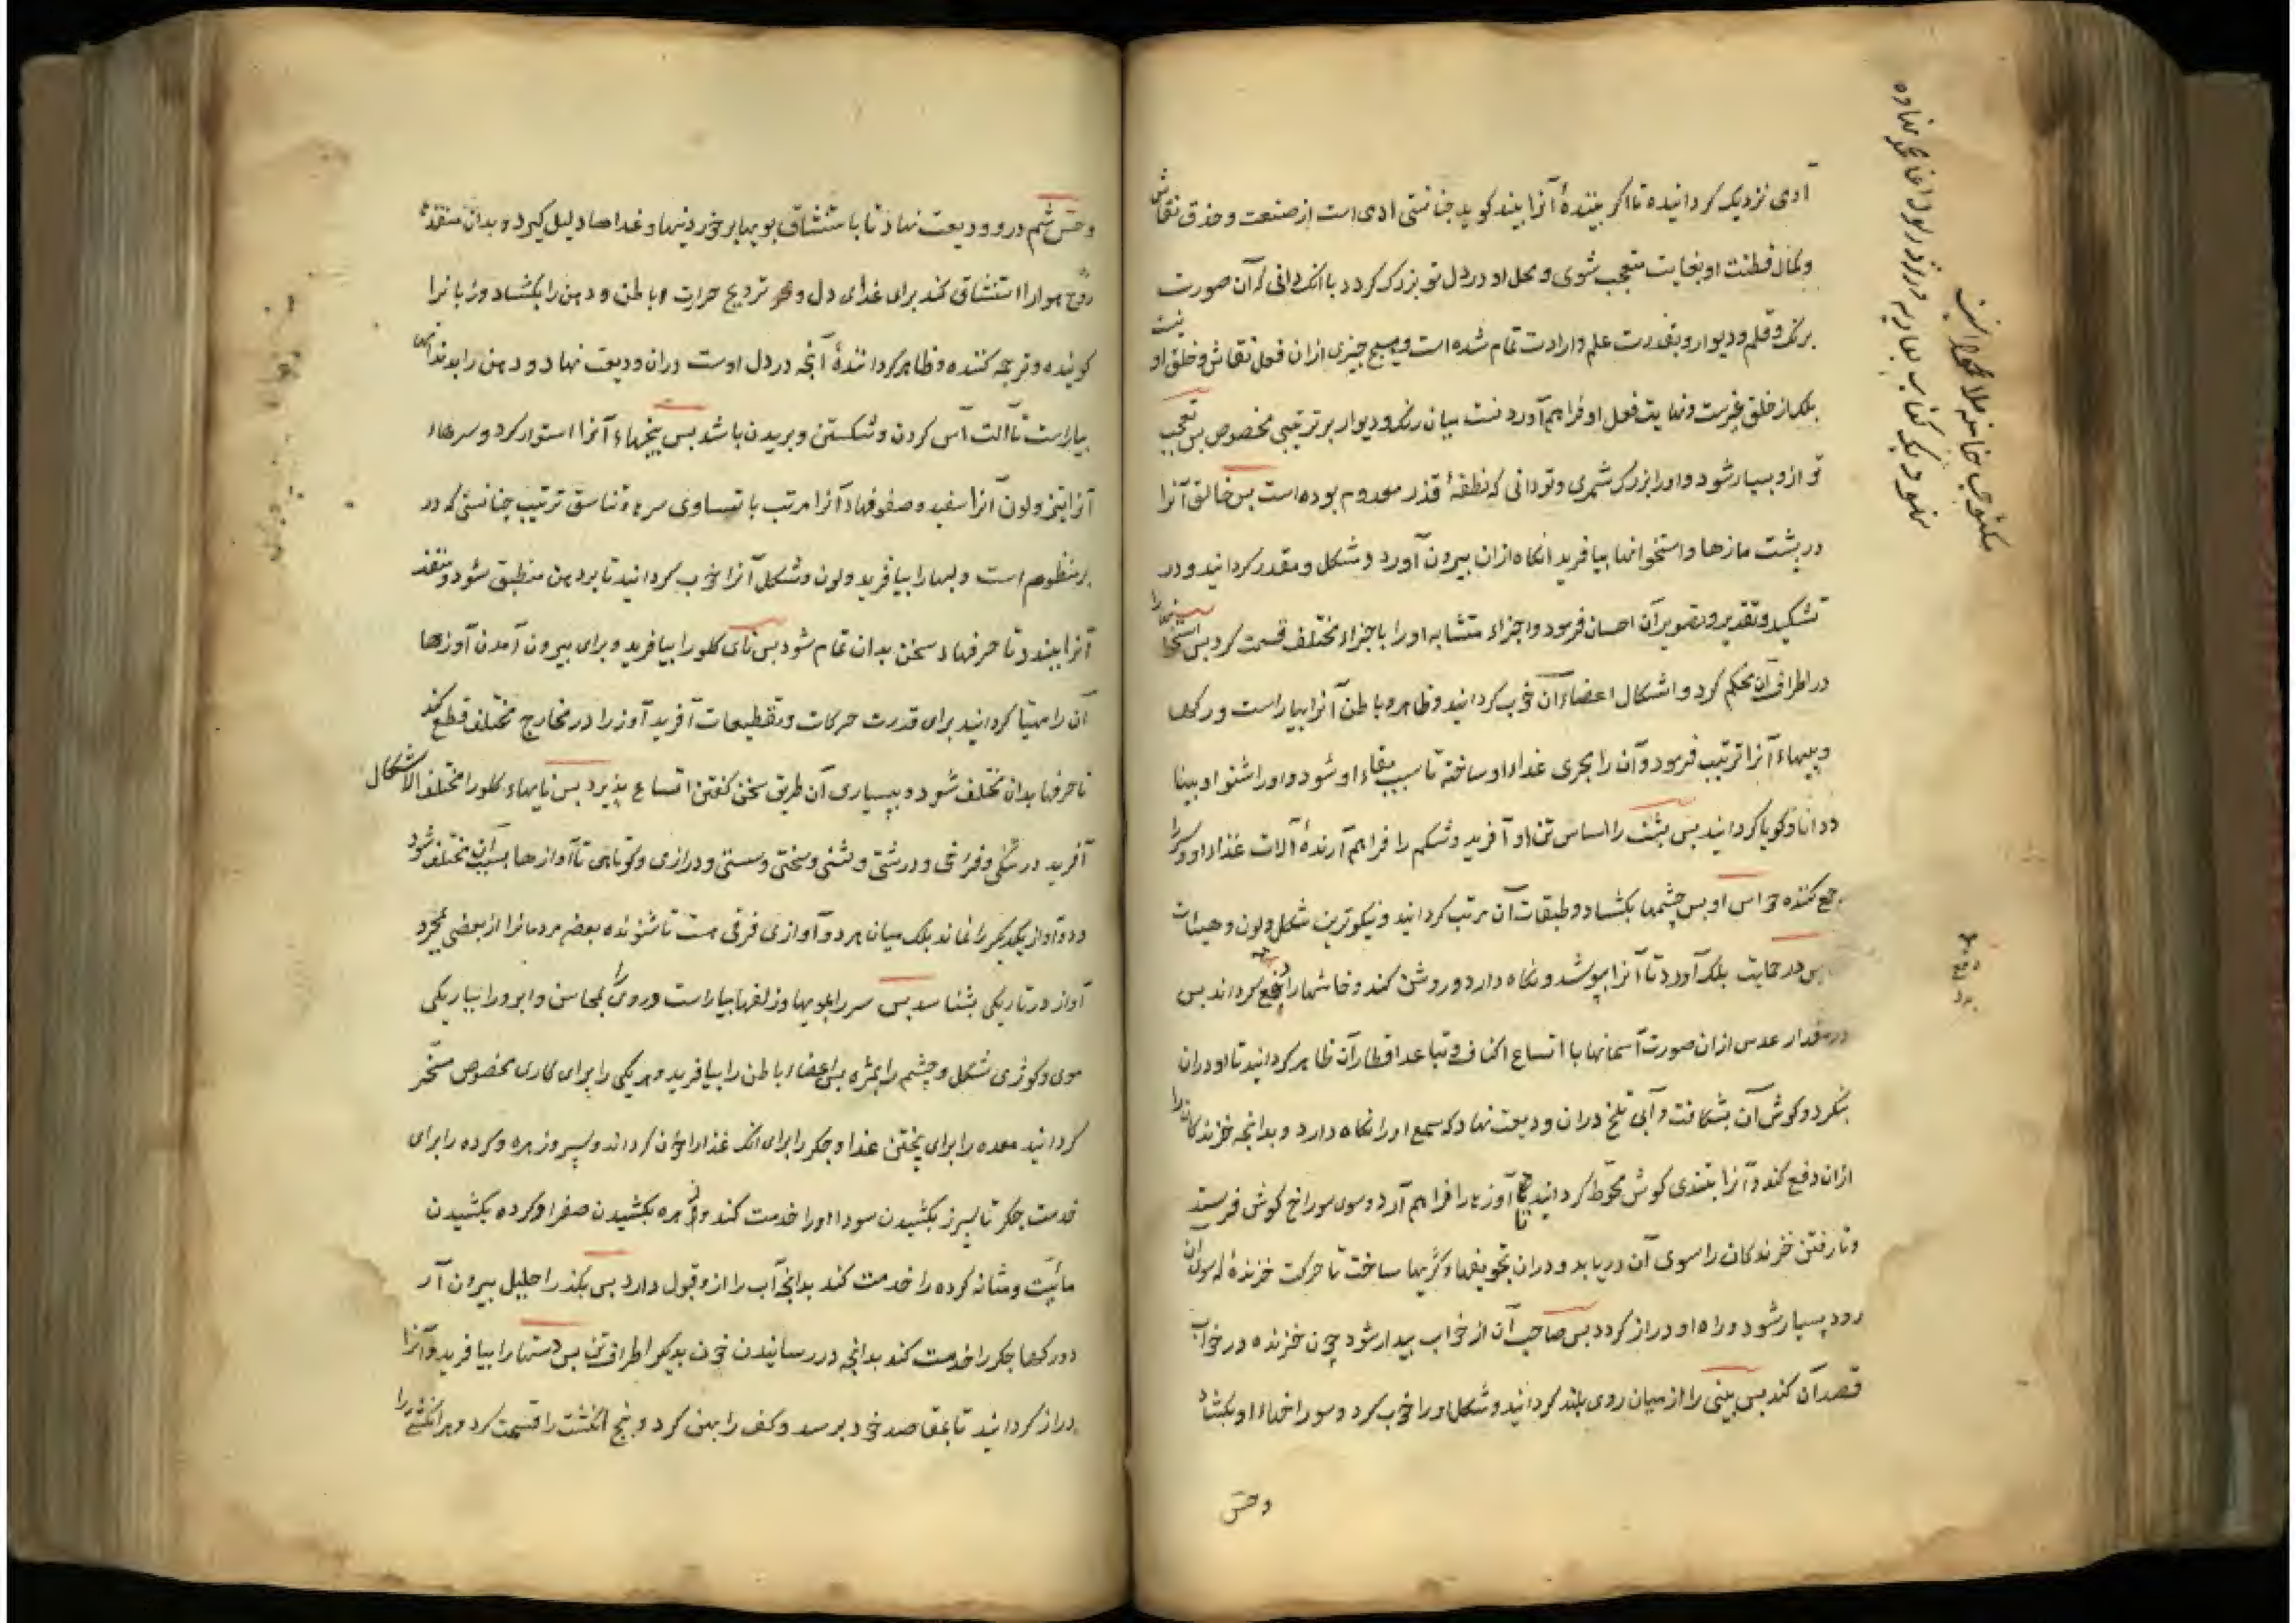 آدمی نزدیک کردانیده تا اکر بینندۀ آنرا بیند کوید چنانستی آدمی است از صنعت و حذق نقاش
وکمال فطنت او بغایت متعجب شوی و محل او در دل تو بزرک کردد با انک دانی که آن صورت
برنک وقلم ودیوار وبقدرت علم وارادت تمام شده است وهیچ چیزی ازان فعل نقاش وخلق او نیست
بلک از خلق غیرست ونهایت فعل او فراهم آوردنست میان رنک ودیوار بر ترتیبی مخصوص بس تعجب
تو ازو بسیار شود واورا بزرک شمری وتو دانی که نطفۀ قذر معدوم بوده است بس خالق آنرا
در بشت مازها واستخوانها بیافرید انکاه ازان بیرون آورد وشکل ومقدر کردانید ودر
تشکیل وتقدیر وتصویر آن احسان فرمود واجزاء متشابه اورا باجزاء مختلف قسمت کرد بس استخوانها را
در اطراف آن محکم کرد واشکال اعضاء آن خوب کردانید وظاهر وباطن آنرا بیاراست ورکها
وپیهاء آنرا ترتیب فرمود وآن را مجری غذاء او ساخته تا سبب بقاء او شود واورا شنوا وبینا
ودانا وکویا کردانید بس بشت را اساس تن او آفرید وشکم را فراهم آرندۀ آلات غذاء او وسر را
جمع کننده حواس او بس چشمها بکشاد وطبقات آن مرتب کردانید ونیکوترین شکل ولون وهیئات
بس در حمایت بلک آورد تا آنرا بپوشد ونکاه دارد وروشن کند وخاشها را دفع کرداند بس
در مقدار عدس ازان صورت آسمانها با اتساع اکناف وتباعد اقطار آن ظاهر کردانید تا او دران
بنکرد وکوش آن بشکافت وآبی تلخ دران ودیعت نهاد که سمع اورا نکاه دارد وبدانجه خزندکان را
ازان دفع کند وآنرا بتندی کوش محوط کردانید تا آوازها را فراهم آرد وسوی سوراخ کوش فرستد
وتا رفتن خزندکان را سوی آن دریابد ودران تجویفها وکژیها ساخت تا حرکت خزندۀ که سوی آن
رود بسیار شود وراه او دراز کردد بس صاحب آن از خواب بیدار شود چون خزنده در خواب
قصد آن کند بس بینی را از میان روی بلند کردانید وشکل اورا خوب کرد وسوراخهاء او بکشاد
وحس
وحس شم درو ودیعت نهاد تا باستنشاق بویها بر خوردنیها وغذاها دلیل کیرد وبدان منفذ
روح هوا را استنشاق کند برای غذای دل و ترویح حرارت باطن ودهن را بکشاد وزبانرا
کوینده وترجمه کننده وظاهر کردانندۀ آنچه در دل اوست دران ودیعت نهاد ودهن را بدندان
بیاراست تا آلت آس کردن وشکستن وبریدن باشد بس بیخهاء آنرا استوار کرد وسرهاء
آنرا تیز ولون آنرا سفید وصفوفهاء آنرا مرتب با تساوی سر وتناسق ترتیب چنانستی که در
بر منظوم است ولبها را بیافرید ولون وشکل آنرا خوب کردانید تا بر دهن منطبق شود ومنفذ
آنرا ببندد تا حرفهاء سخن بدان تمام شود بس نای کلو را بیافرید وبرای بیرون آمدن آوازها
آن را مهیا کردانید برای قدرت حرکات وتقطیعات آفرید آواز را در مخارج مختلف قطع کند
تا حرفها بدان مختلف شود وببسیاری آن طریق سخن کفتن اتساع پذیرد بس نایهاء کلو را مختلف الاشکال
آفرید در تنکی وفراخی ودرشتی ونرمی وسختی وسستی ودرازی وکوتاهی تا آوازها بسبب آن مختلف شود
ودو آواز یکدیکر را نماند بلک میان هر دو آوازی فرقی هست تا شنونده بعضی مردمانرا از بعضی بمجرد
آواز در تاریکی بشناسد بس سر را بمویها وزلفها بیاراست وروی را بمحاسن وابرو را بباریکی
موی وکوژی شکل وچشم را بمژه بس اعضاء باطن را بیافرید وهر یکی را برای کاری مخصوص مسخر
کردانید معده را برای پختن غذا وجکر را برای انک غذا را خون کرداند وسپرز وزهره وکرده را برای
خدمت جکر تا سپرز بکشیدن سودا اورا خدمت کند وزهره بکشیدن صفرا وکرده بکشیدن
مائیت ومثانه کرده را خدمت کند بدانچه آب را ازو قبول دارد بس بکذر احلیل بیرون آرد
ورکها جکر را خدمت کند بدانچه در رسانیدن خون بدیکر اطراف تن بس دستها را بیافرید وآنرا
دراز کردانید تا بمقاصد خود برسد وکف را پهن کرد وپنج انکشت را قسمت کرد وهر انکشتی را